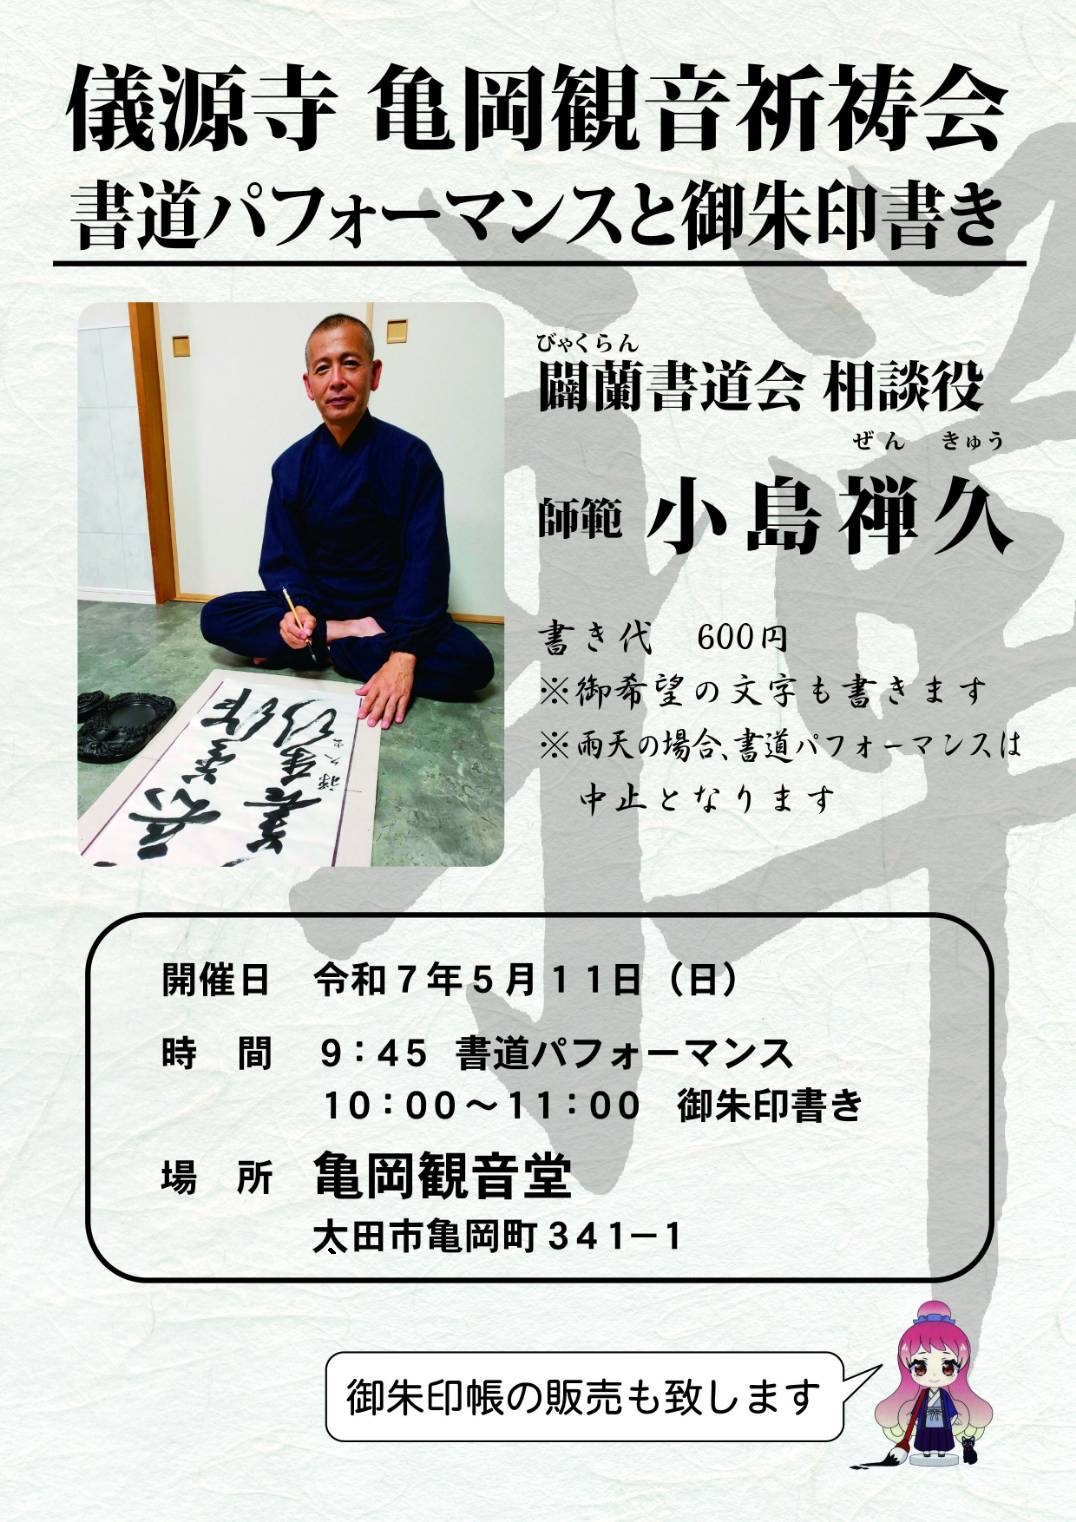 儀源寺 亀岡観音祈祷会
書道パフォーマンスと御朱印書き
びゃくらん
闢蘭書道会 相談役
ぜん きゅう
師範 小島禅久
書き代 600円
※御希望の文字も書きます
※雨天の場合、書道パフォーマンスは
中止となります
開催日 令和7年5月11日（日）
時 間 9：45 書道パフォーマンス
10：00～11：00 御朱印書き
場 所 亀岡観音堂
太田市亀岡町341－1
御朱印帳の販売も致します